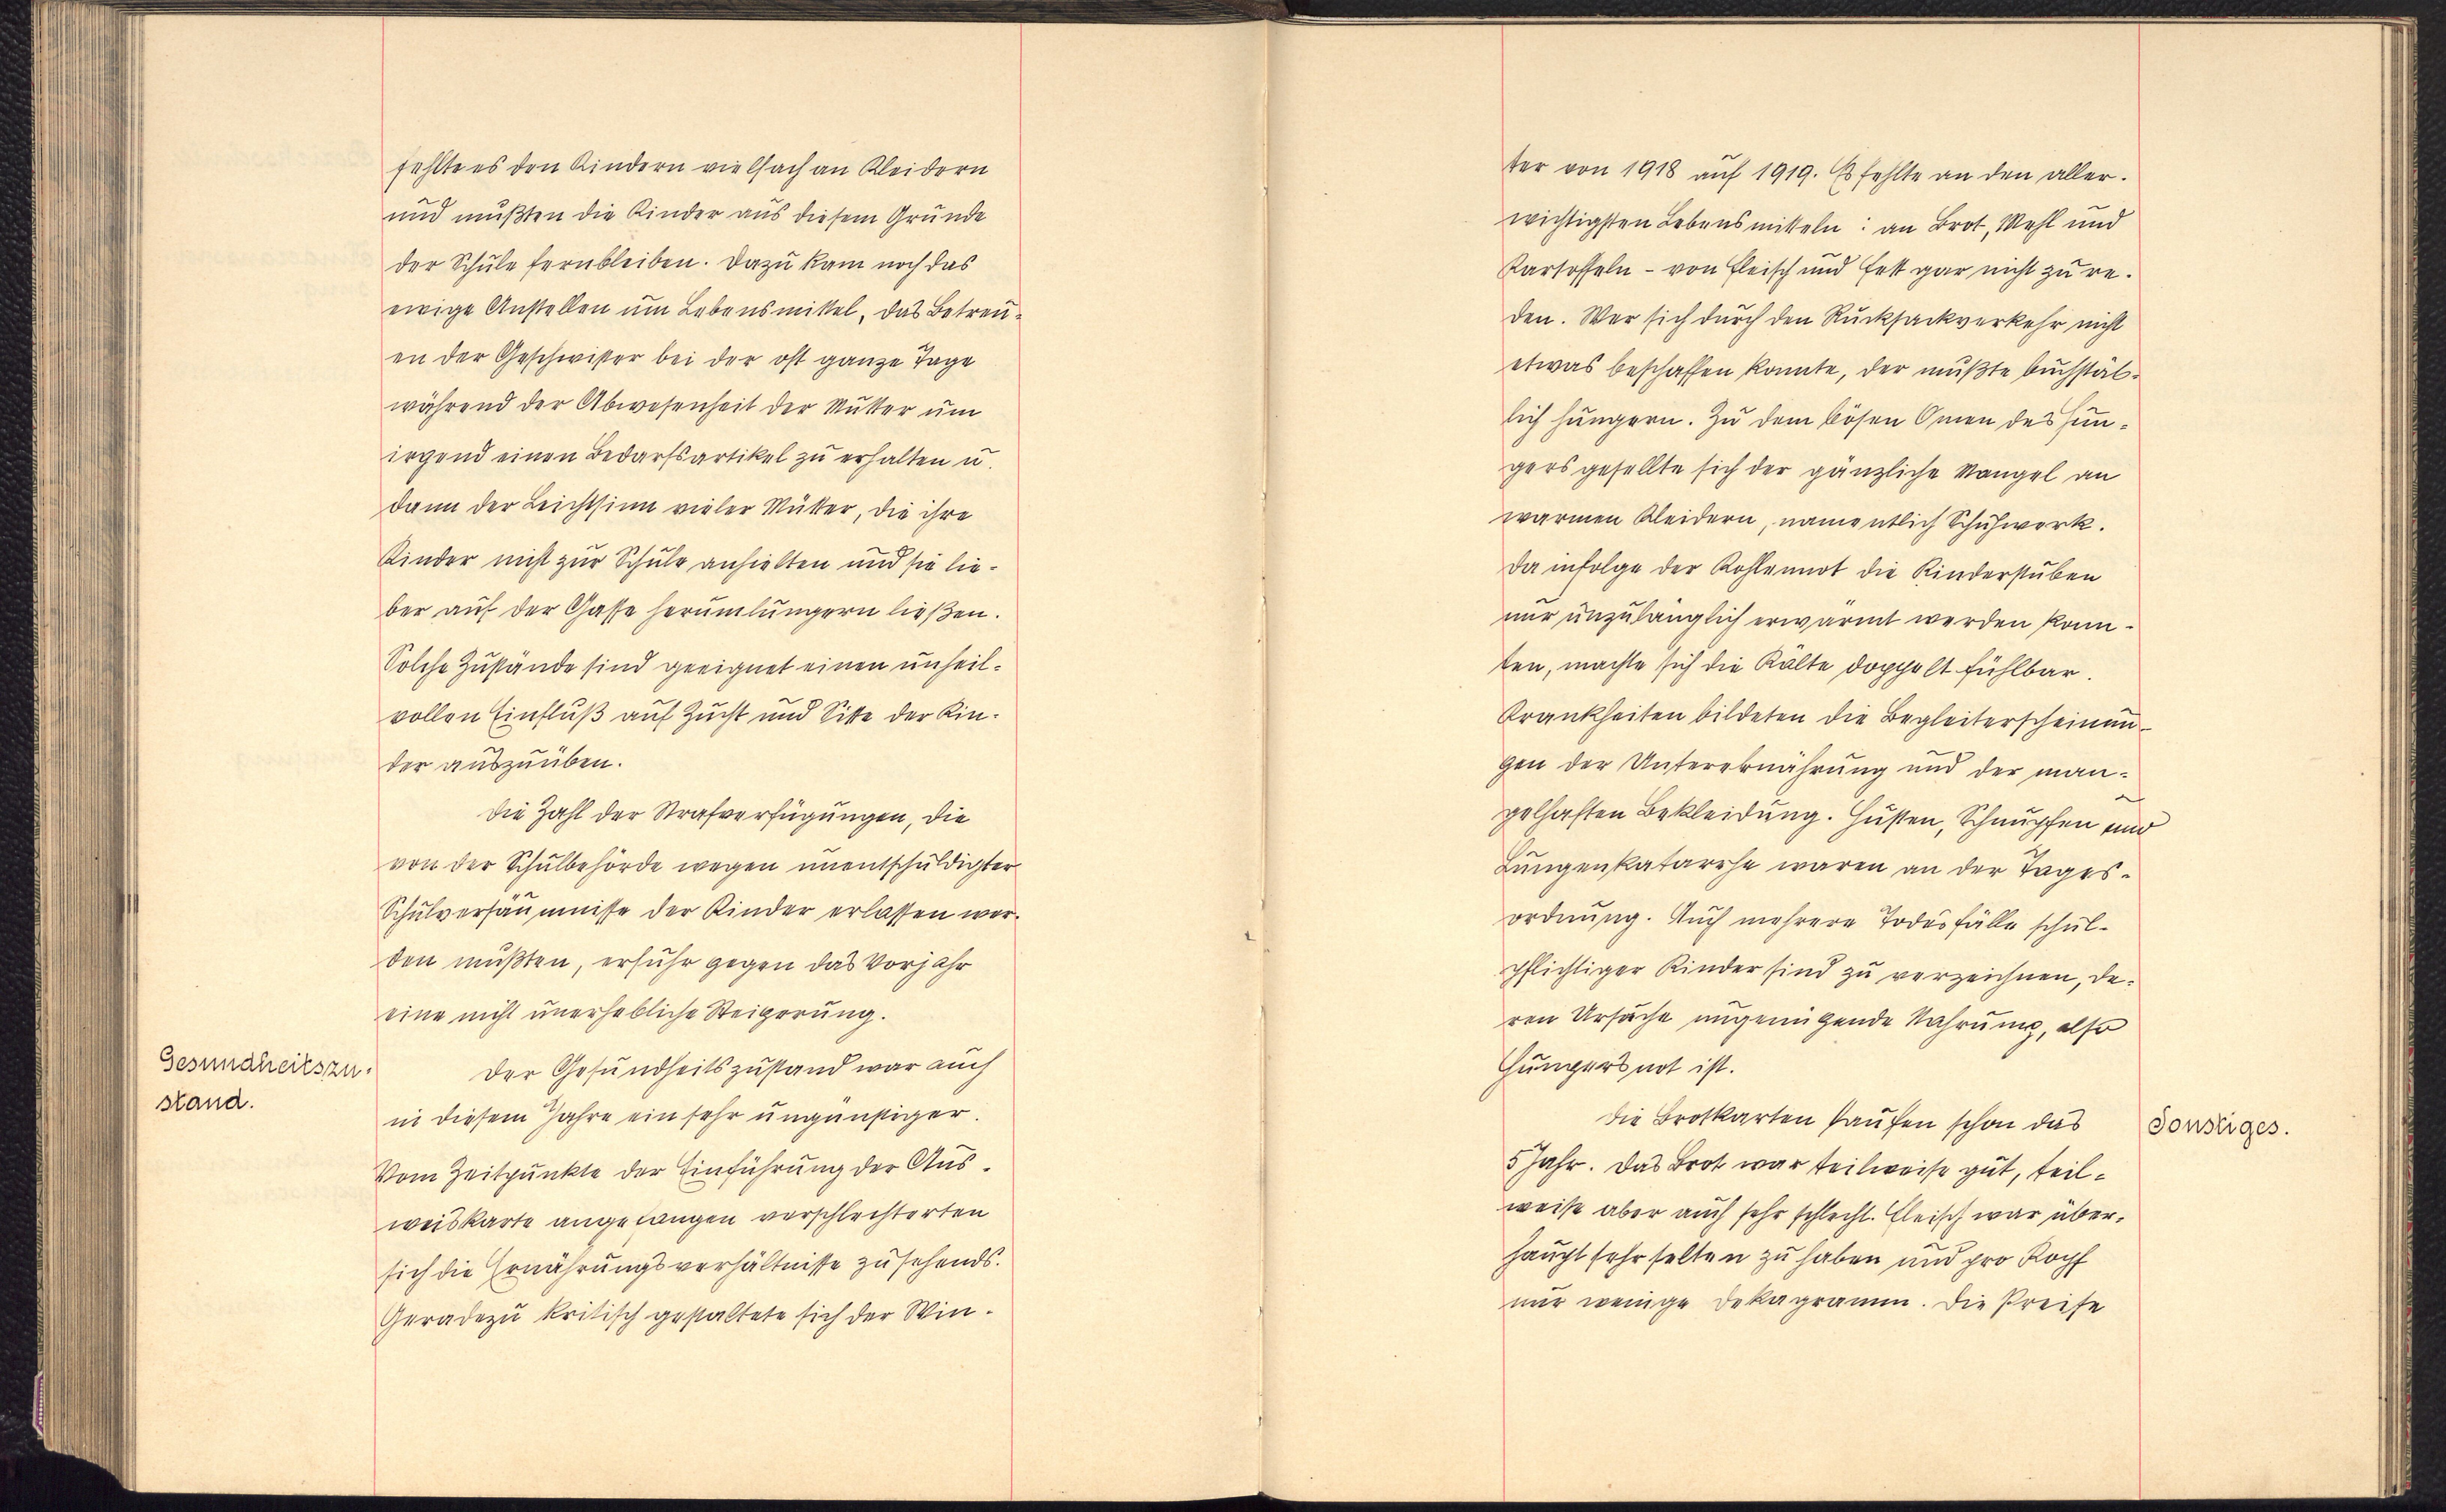 fehlte es den Kindern vielfach an Kleidern
und mußten die Kinder aus diesem Grunde
der Schule fernbleiben. Dazu kam noch das
ewige Anstellen um Lebensmittel, das Betreu-
en der Geschwister bei der oft ganze Tage
während der Abwesenheit der Mutter um
irgend einen Bedarfsartikel zu erhalten u.
dann der Leichtsinn vieler Mütter, die ihre
Kinder nicht zur Schule anhielten und sie lie-
ber auf der Gasse herumlungern ließen.
Solche Zustände sind geeignet einen unheil-
vollen Einfluß auf Zucht und Sitte der Kin-
der auszuüben.
Die Zahl der Strafverfügungen, die
von der Schulbehörde wegen unentschuldigter
Schulversäumnisse der Kinder erlassen wer-
den mußten, erfuhr gegen das Vorjahr
eine nicht unerhebliche Steigerung.
Gesundheitszu-
stand.
Der Gesundheitszustand war auch
in diesem Jahre ein sehr ungünstiger.
Vom Zeitpunkte der Einführung der Aus-
weiskarte angefangen verschlechterten
sich die Ernährungsverhältnisse zusehends.
Geradezu kritisch gestaltete sich der Win-
ter von 1918 auf 1919. Es fehlte an den aller-
wichtigsten Lebensmitteln: an Brot, Mehl und
Kartoffeln - von Fleisch und Fett gar nicht zu re-
den. Wer sich durch den Rucksackverkehr nicht
etwas beschaffen konnte, der mußte buchstäb-
lich hungern. Zu dem bösen Omen des Hun-
gers gesellte sich der gänzliche Mangel an
warmen Kleidern, namentlich Schuhwerk.
Da infolge der Kohlennot die Kinderstuben
nur unzulänglich erwärmt werden konn-
ten, machte sich die Kälte doppelt fühlbar.
Krankheiten bildeten die Begleiterscheinun-
gen der Unterernährung und der man-
gelhaften Bekleidung. Husten, Schnupfen und
Lungenkatarrhe waren an der Tages-
ordnung. Auch mehrere Todesfälle schul-
pflichtiger Kinder sind zu verzeichnen, de-
ren Ursache ungenügende Nahrung, also
Hungersnot ist.
Die Brotkarten laufen schon das
Sonstiges.
5 Jahr. Das Brot war teilweise gut, teil-
weise aber auch sehr schlecht. Fleisch war über-
haupt sehr selten zu haben und pro Kopf
nur wenige Dekagramm. Die Preise